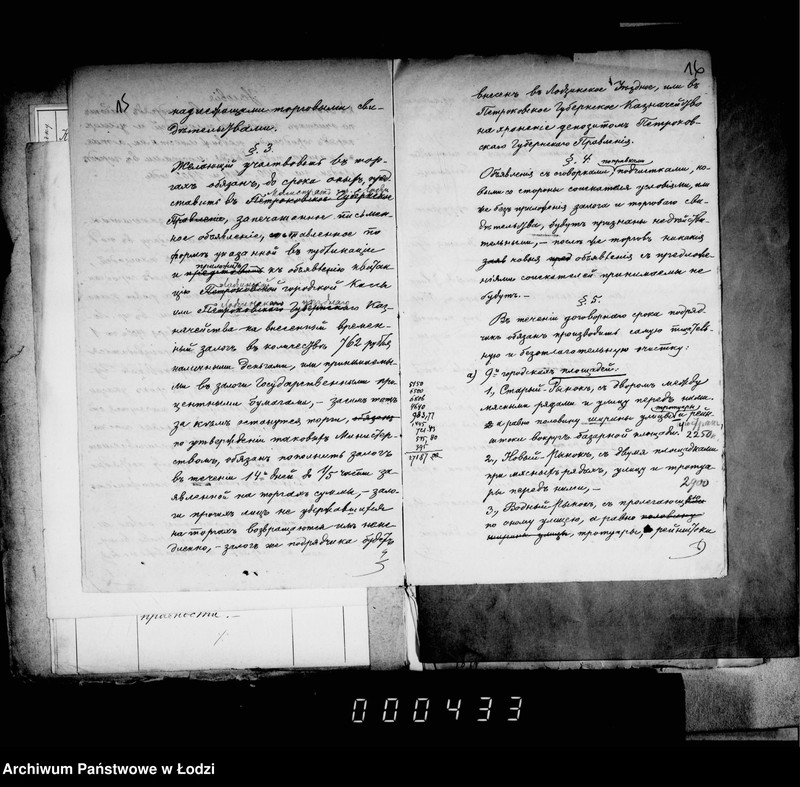 15
надлежащими торговыми сви-
дѣтельствами.
§. 3.
Желающій участвовать въ тор-
гахъ обязанъ, до срока оныхъ, пред
ставить въ Петроковское Губернское
Магистратъ гор. Лодзи
Правленіе, запечатанное письмен-
ное объявленіе, составленное по
формѣ указанной въ публикаціи
и представить къ объявленію квитан
приложить
цію Петроковской городской Кассы
Лодзинской
или Петроковскаго Губернскаго Каз-
Лодзинскаго уѣзднаго
начейства на внесенный времен-
ный залогъ въ количествѣ 762 рубля
наличными деньгами, или принимаемы-
ми въ залоги Государственными про
центными бумагами, – засимъ тотъ
за кѣмъ останутся торги, обязанъ
по утвержденіи таковыхъ Министер-
ствомъ, обязанъ пополнить залогъ
въ теченіи 14и дней до 1/5 части за
явленной на торгахъ суммы, – зало-
ги прочихъ лицъ не удержавшихся
на торгахъ возвращаются имъ неме-
дленно, – залогъ же подрядчика будетъ
16
внесенъ въ Лодзинское Уѣздное, или въ
Петроковское Губернское Казначейство
на храненіе депозитомъ Петроков-
скаго Губернскаго Правленія.
§. 4.
поправками
Объявленія съ оговорками, подчистками, но-
выми со стороны соискателя условіями, или
же безъ приложенія залога и торговаго сви
дѣтельства, будутъ признаны недѣйстви-
тельными, – послѣ же торговъ никакія
новыя объявленія съ предложе-
ніями соискателей принимаемы не
будутъ. –
§. 5.
Въ теченіи договорнаго срока подряд-
чикъ обязанъ производить самую тщатель-
ную и безотлагательную очистку:
а) 9и городскихъ площадей:
1, Старый Рынокъ, съ дворомъ между
мясными рядами и улицу передъ ними
а равно половину ширины улицы и рейн-
тротуары
штоки вокругъ базарной площади. 2250
2, Новый Рынокъ, съ двумя площадками
при мясныхъ рядахъ, улицу и тротуа-
ры передъ ними, – 2900
3, Водный Рынокъ, съ пролегающею
по оному улицею, а равно половину
ширины улицы, тротуары, рейнштока
983,77
721.43
27187
прачности. –
000433
Archiwum Państwowe w Łodzi